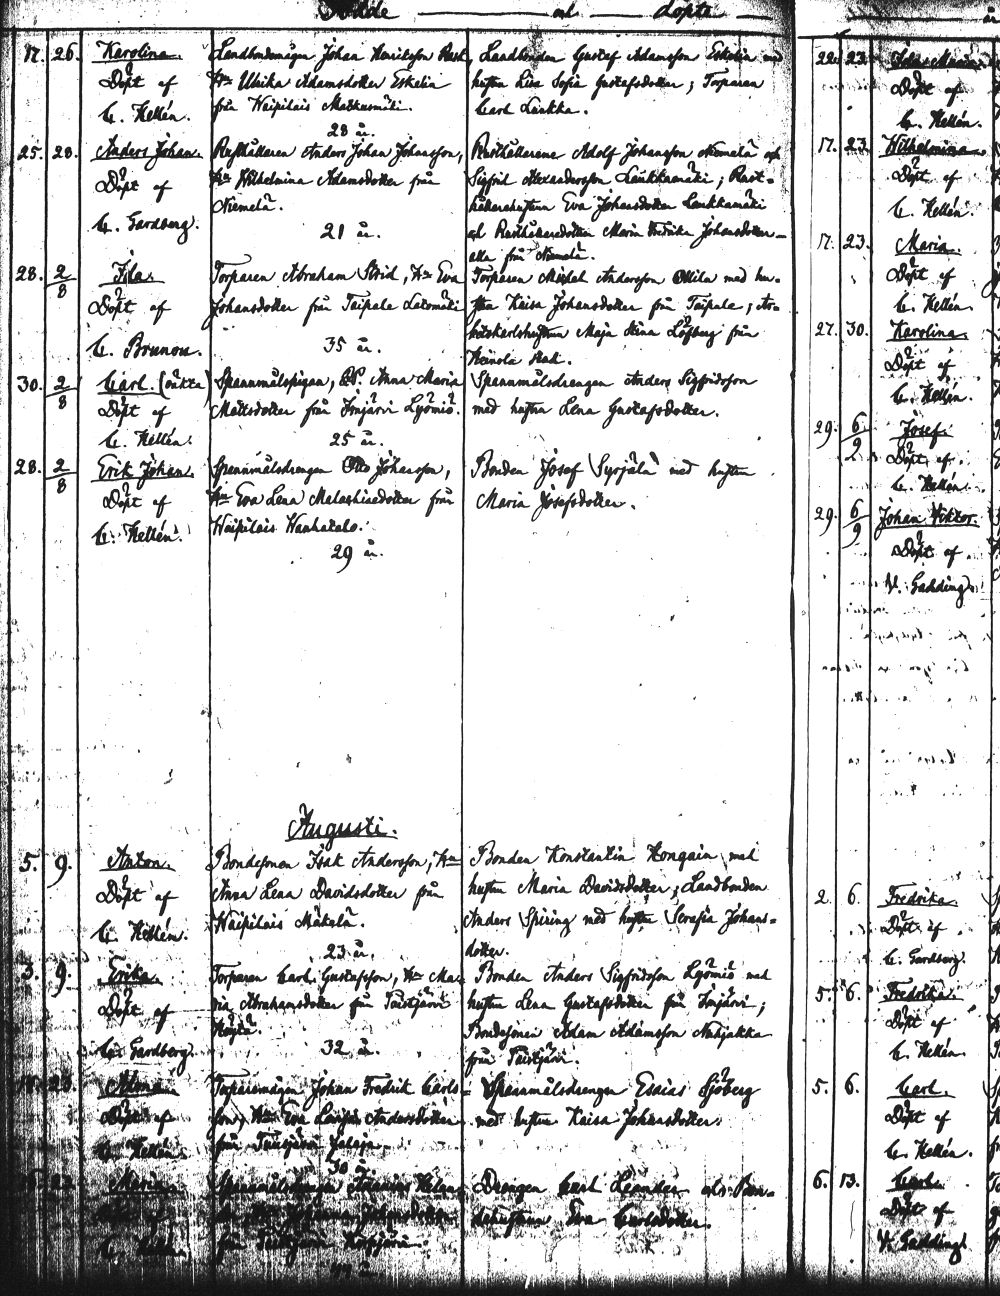 Födde och döpte
17. 26. Karolina. Landbondemågen Johan Henriksson Rask, Landbonden Gustaf Adamsson Eskelin med
Döpt af H:u Ulrika Adamsdotter Eskelin hustru Lisa Sofia Gustafsdotter; Torparen
C. Hellén. från Waipilais Matkusmäki. Carl Lankka.
28 år.
25. 28. Anders Johan. Rusthållaren Anders Johan Johansson, Rusthållarene Adolf Johansson Niemelä och
Döpt af H:u Wilhelmina Adamsdotter från Sigfrid Alexandersson Laukkamäki; Rust-
C. Gardberg. Niemelä. hållarehustrun Eva Johansdotter Laukkamäki
21 år. och Rusthållaredottren Maria Fredrika Johansdotter
alla från Niemelä.
28. 2/8 Ida. Torparen Abraham Strid, H:u Eva Torparen Michel Andersson Mila med hu-
Döpt af Johansdotter från Taipale Latomäki stru Kaisa Johansdotter från Taipale; Ar-
C. Brunou. 35 år. betskarlshustrun Maja Stina Löfberg från
Heinola stad.
30. 2/8 Carl. (oäkta) Spannmålspigan, Anna Maria Spannmålsdrengen Anders Sigfridsson
Döpt af Mattsdotter från Imjärvi Lyömiö. med hustru Lena Gustafsdotter.
C. Hellén. 25 år.
28. 2/8 Erik Johan. Spannmålsdrengen Otto Johansson, Bonden Josef Syrjälä med hustru
Döpt af H:u Eva Lena Malakiasdotter från Maria Josefsdotter.
C. Hellén. Waipilais Wanhatalo.
29 år.
Augusti.
5. 9. Anton. Bondesonen Isak Andersson, H:u Bonden Konstantin Hongain med
Döpt af Anna Lena Davidsdotter från hustru Maria Davidsdotter; Landbonden
C. Hellén. Waipilais Mäkelä. Anders Spiring med hustru Serafia Johans-
23 år. dotter.
3. 9. Erika. Torparen Carl Gustafsson, H:u Ma- Bonden Anders Sigfridsson Lyömiö med
Döpt af ria Abrahamsdotter från Paistjärvi hustru Lena Gustafsdotter från Imjärvi;
C. Gardberg. 32 år. Bondesonen Adam Adamsson
från Paistjärvi.
Alma. Torparemågen Johan Fredrik Carls- Spannmålsdrengen Esaias Sjöberg
Döpt af son, H:u Eva Lovisa Andersdotter med hustru Kaisa Johansdotter.
C. Hellén. från Paistjärvi
30 år.
Maria. Spannmålsdrengen Drengen Carl Leander och Bon-
Döpt af dehustrun Eva Carlsdotter.
C. Hellén. från Paistjärvi
22. 23. Ida Maria.
Döpt af
C. Hellén.
17. 23. Wilhelmina.
Döpt af
C. Hellén.
17. 23. Maria.
Döpt af
C. Hellén.
27. 30. Karolina.
Döpt af
C. Hellén.
29. 6/9 Josef.
Döpt af
C. Hellén.
29. 6/9 Johan Viktor.
Döpt af
V. Gadding.
2. 6. Fredrika.
Döpt af
C. Gardberg.
5. 6. Fredrika.
Döpt af
C. Hellén.
5. 6. Carl.
Döpt af
C. Hellén.
6. 13. Carl.
Döpt af
V. Gadding.